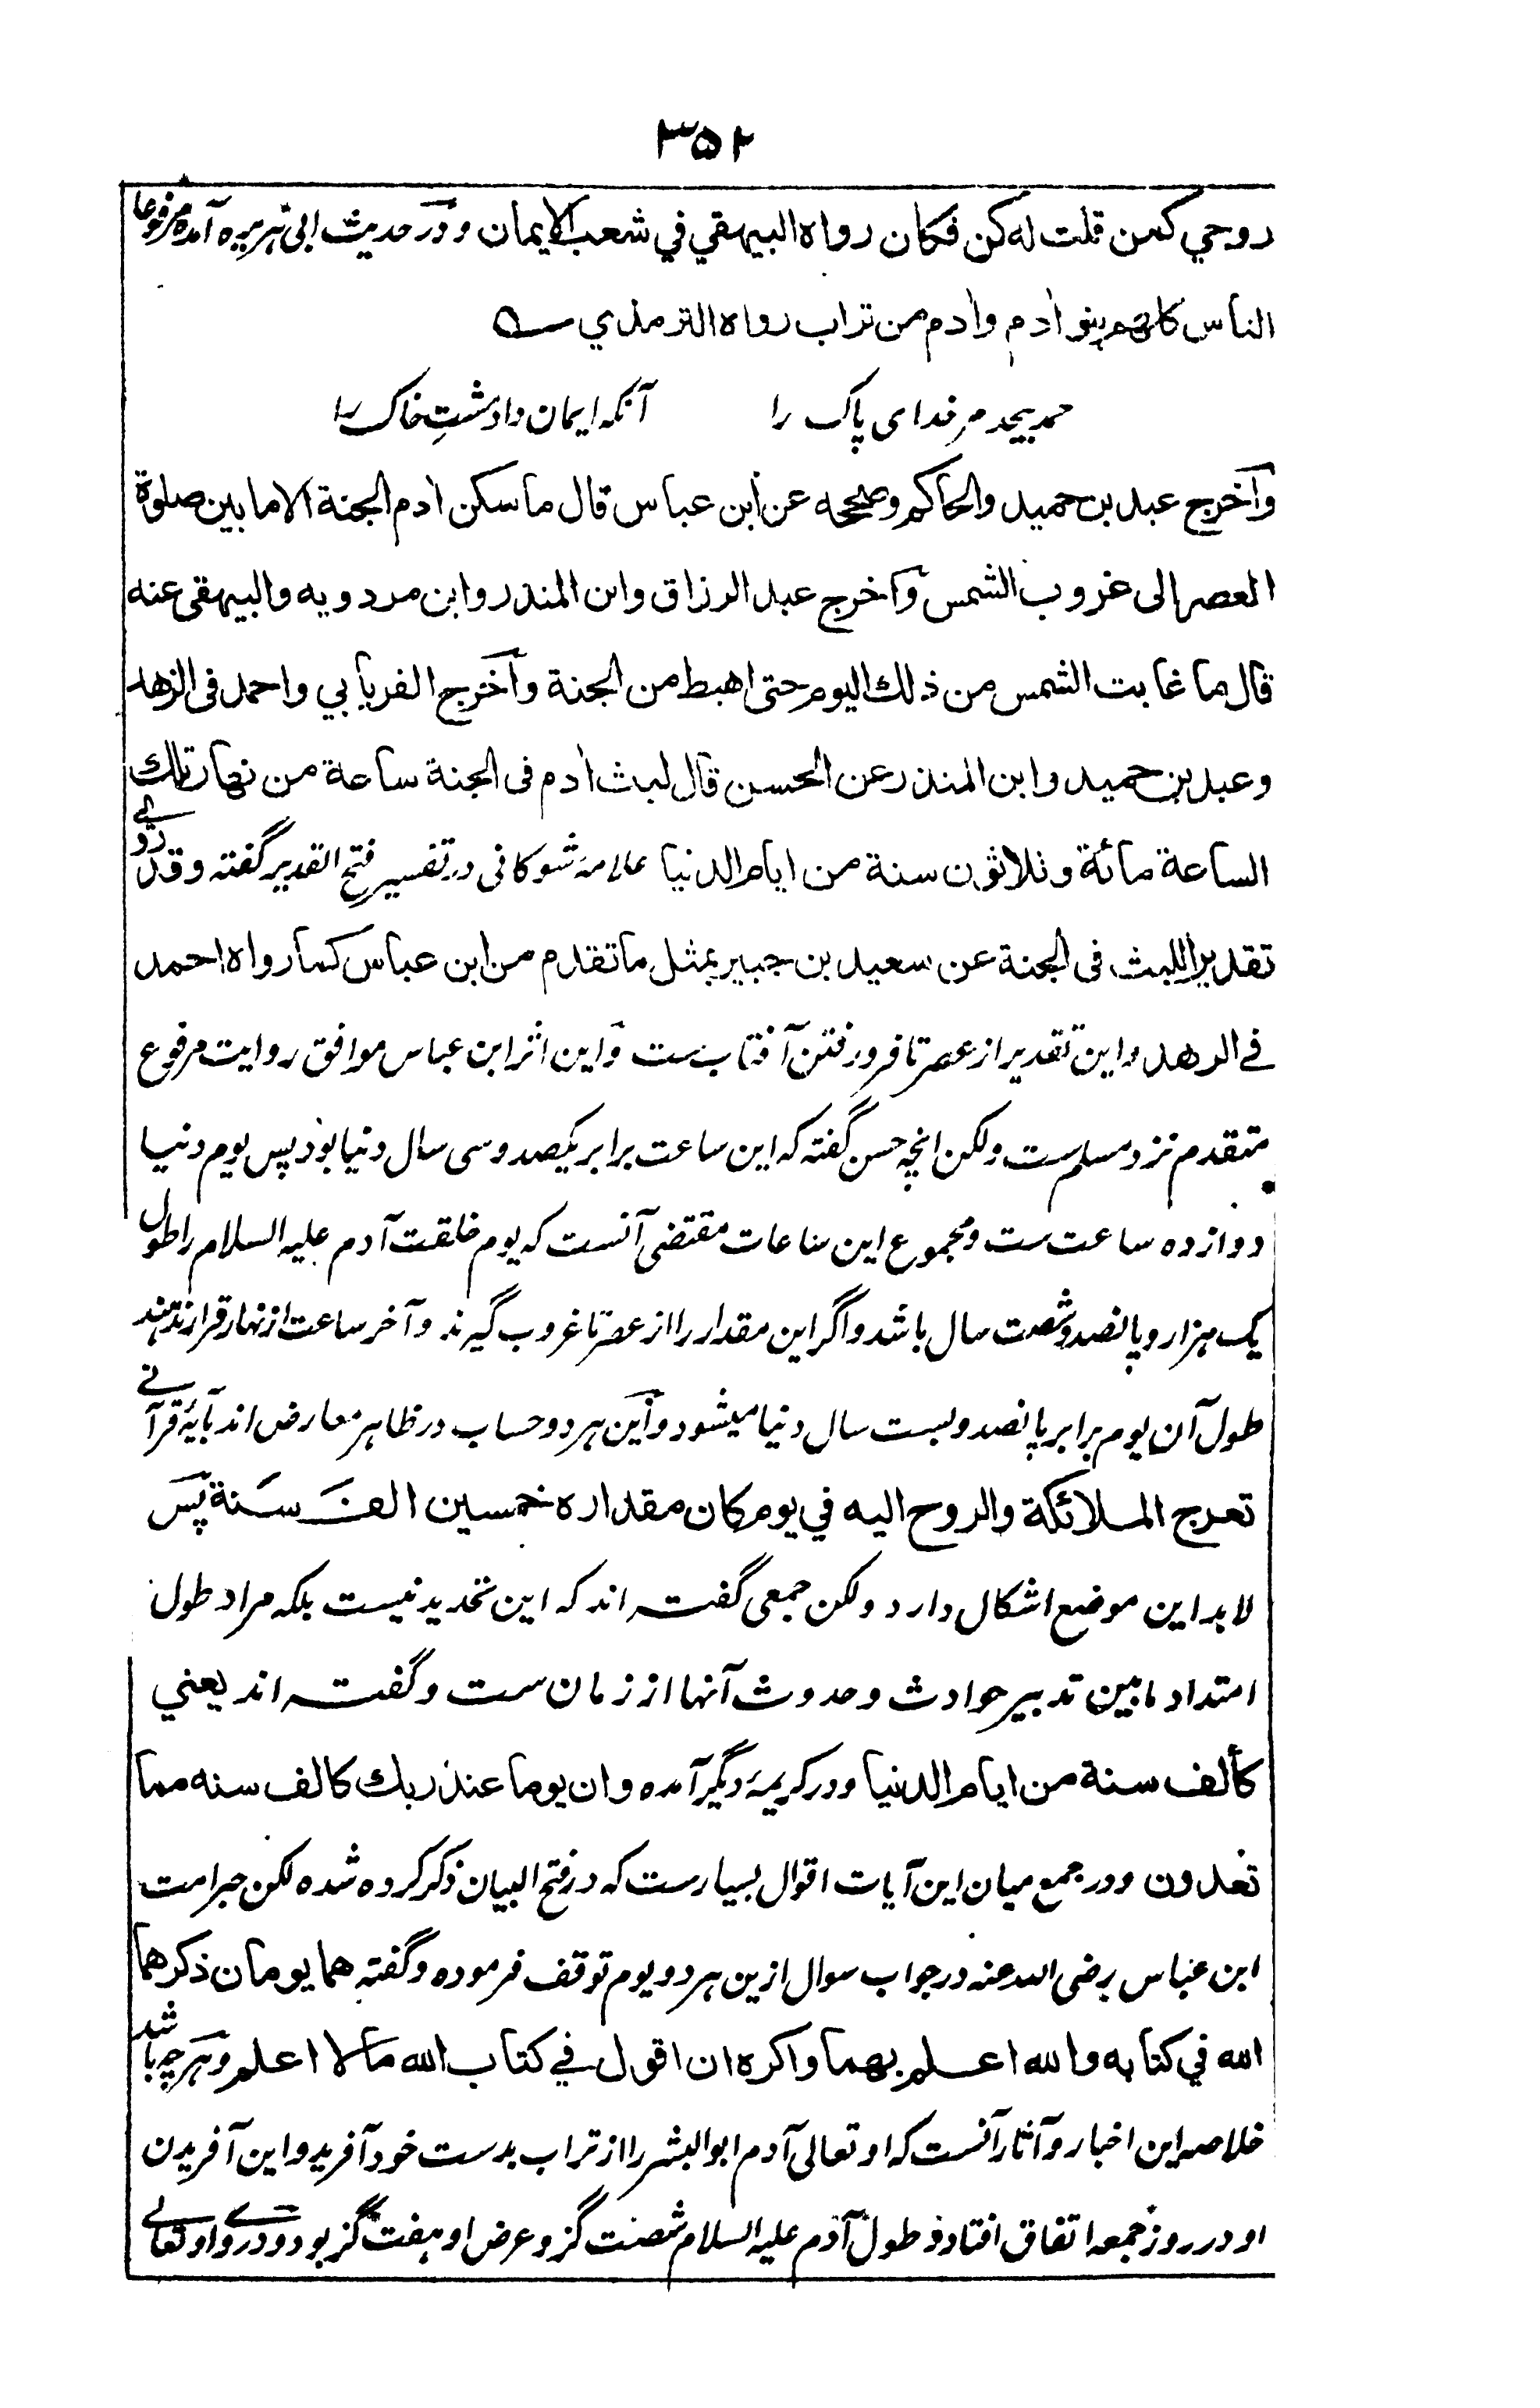 ۳۵۲
روحي كمن قلت له كن فكان رواه البيهقي في شعب الايمان ودر حديث ابی هريره آمده مرفوعا
الناس كلهم بنو ادم وادم من تراب رواه الترمذي
حمد بیحد مر خدای پاک را آنکه ایمان داد مشتِ خاک را
وآخرج عبد بن حميد والحاكم وصححه عن ابن عباس قال ما سكن ادم الجنة الا ما بين صلوة
العصر الى غروب الشمس وآخرج عبد الرزاق وابن المنذر وابن مردويه والبيهقى عنه
قال ما غابت الشمس من ذلك اليوم حتى اهبط من الجنة وآخرج الفريابي واحمد فى الزهد
وعبد بن حميد وابن المنذر عن الحسن قال لبث ادم فى الجنة ساعة من نهار تلك
الساعة مائة وثلاثون سنة من ايام الدنيا علامۀ شوکانی در تفسیر فتح القدیر گفته وقد روي
تقدير اللبث فى الجنة عن سعيد بن جبير بمثل ما تقدم من ابن عباس كما رواه احمد
في الزهد واین تقدیر از عصر تا فرو رفتن آفتاب ست واین اثر ابن عباس موافق روایت مرفوع
متقدم نزد مسلم ست ولکن انچه حسن گفته که این ساعت برابر یکصد وسی سال دنیا بود پس یوم دنیا
دوازده ساعت ست ومجموع این ساعات مقتضی آنست که یوم خلقت آدم علیه السلام را طول
یک هزار و پانصد وشصت سال باشد واگر این مقدار را از عصر تا غروب گیرند وآخر ساعت از نهار قرار ندهند
طول آن یوم برابر پانصد وبست سال دنیا میشود واین هر دو حساب در ظاهر معارض اند بآیۀ قرآنی
تعرج الملائكة والروح اليه في يوم كان مقداره خمسين الف سنة پس
لابد این موضع اشکال دارد ولکن جمعی گفته اند که این تحدید نیست بلکه مراد طول
امتداد مابین تدبیر حوادث وحدوث آنها از زمان ست وگفته اند یعني
كألف سنة من ايام الدنيا ودر کریمۀ دیگر آمده وان يوما عند ربك كالف سنه مما
تعدون ودر جمع میان این آیات اقوال بسیارست که در فتح البیان ذکر کرده شده لکن حبر امت
ابن عباس رضی الله عنه در جواب سوال ازین هر دو یوم توقف فرموده وگفته هما يومان ذكرهما
الله في كتابه والله اعلم بهما واكره ان اقول في كتاب الله ما لا اعلم وهرچه باشد
خلاصه این اخبار وآثار آنست که او تعالی آدم ابو البشر را از تراب بدست خود آفرید واین آفریدن
او در روز جمعه اتفاق افتاد و طول آدم علیه السلام شصت گز وعرض او هفت گز بود ودری او تعالی